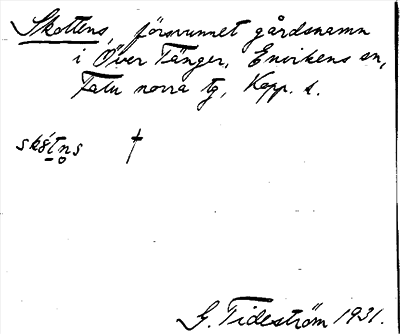 Skottens, försvunnet gårdsnamn
i Över Tänger, Envikens sn,
Falu norra tg, Kopp. l.
skötn̥s †
G. Tideström 1931.